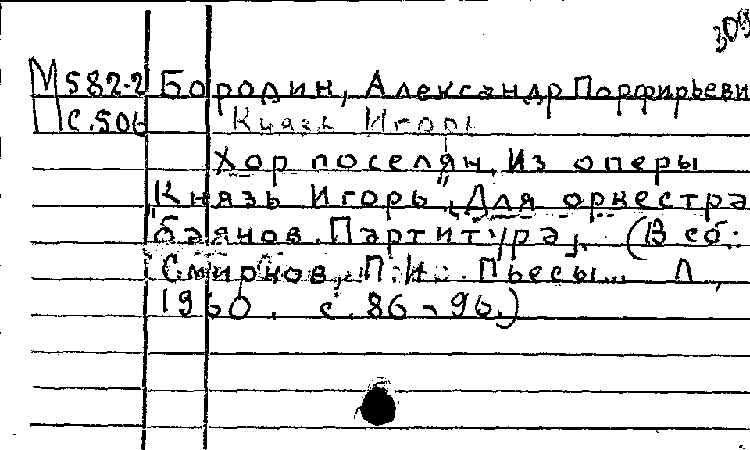 309
М582-2 Бородин, Александр Порфирьеви
Пс.506 Князь Игорь
Хор поселян. Из оперы
"Князь Игорь". [Для оркестра
баянов. Партитура]. (В сб:
Смирнов, П.И. Пьесы... Л,
1960. с. 86-96.)